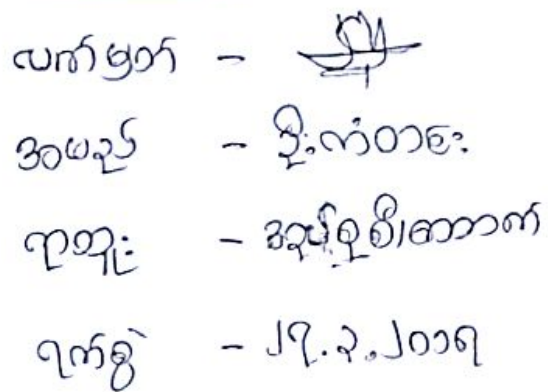 လက်မှတ် -
အမည် - ဦးကံဝင်း
ရာထူး - အုပ်စုစီးထောက်
ရက်စွဲ - ၂၇.၃.၂၀၁၈